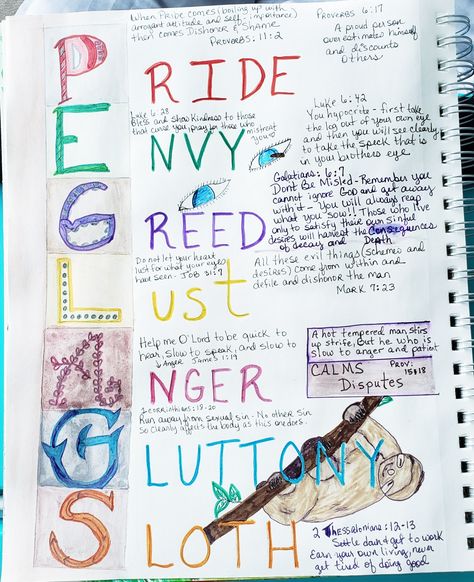 When Pride comes (boiling up with
arrogant attitude and self-importance)
then comes Dishonor & Shame
Proverbs: 11:2
Proverbs 6:17
A proud person
over estimates himself
and discounts
Others
PRIDE
Luke 6:28
Bless and show kindness to those
that curse you, pray for those who
mistreat
you
Luke 6:42
You hypocrite - first take
the log out of your own eye
and then you will see clearly
to take the speck that is
in your brothers eye
ENVY
Galatians: 6:7
Dont Be Misled - Remember you
cannot ignore GOD and get away
with it - You will always reap
what you sow!! Those who live
only to satisfy their own sinful
desires will harvest the Consequences
of decay and Death
GREED
Do not let your heart
lust for what your eyes
have seen - JOB 31:7
All these evil things (schemes and
desires) come from within and
defile and dishonor the man
Mark 7:23
Lust
Help me O'Lord to be quick to
hear, slow to speak, and slow to
Anger James 1:19
A hot tempered man stirs
up strife, But he who is
slow to anger and patient
CALMS Prov:
Disputes 15:18
ANGER
Corrinthians: 18-20
Run away from sexual sin - No other Sin
So Clearly affects the body as this one does.
GLUTTONY
SLOTH
2 Thessalonians: 12-13
Settle down & get to work
Earn your own living, never
get tired of doing good